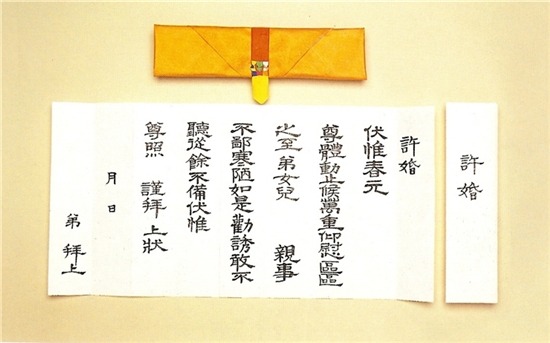 許婚
許婚
伏惟春元
尊體動止候萬重仰慰區區
之至弟女兒 親事
不鄙寒陋如是勸誘敢不
聽從餘不備伏惟
尊照 謹拜上狀
月 日
弟 拜上